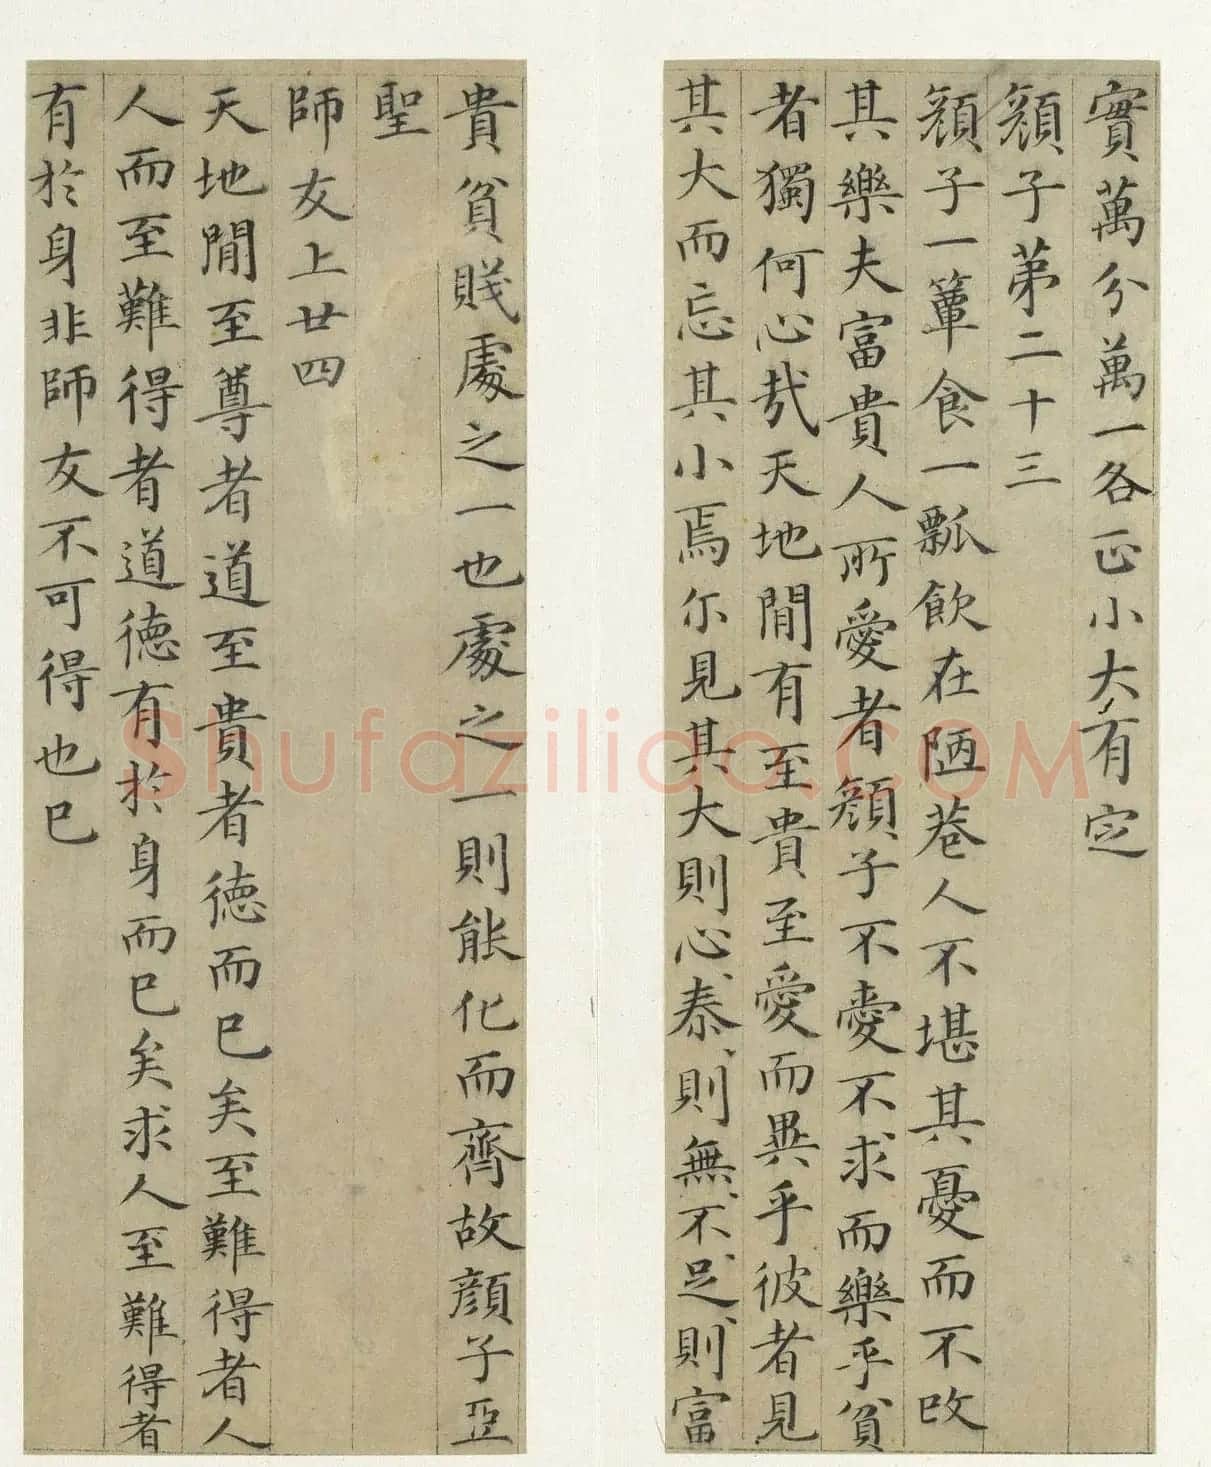 實萬分萬一各正小大有定
顏子苐二十三
顏子一簞食一瓢飲在陋巷人不堪其憂而不改
其樂夫富貴人所愛者顏子不愛不求而樂乎貧
者獨何心哉天地閒有至貴至愛而異乎彼者見
其大而忘其小焉尒見其大則心泰〻則無〻不〻足〻則富
貴貧賤處之一也處之一則能化而齊故顏子亞
聖
師友上廿四
天地閒至尊者道至貴者德而已矣至難得者人
人而至難得者道德有於身而已矣求人至難得者
有於身非師友不可得也已
Shufaziliao.COM